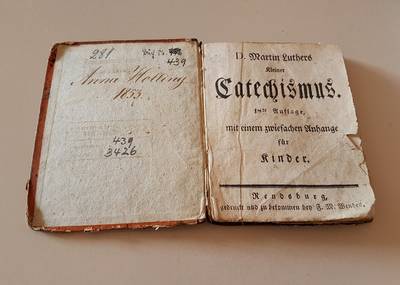 281
439
Anna
1833
439
3426
D. Martin Luthers
Kleiner
Catechismus.
Auflage,
mit einem zwiefachen Anhange
für
Kinder.
Rendsburg,
gedruckt und zu bekommen bey F. M. Wendell.